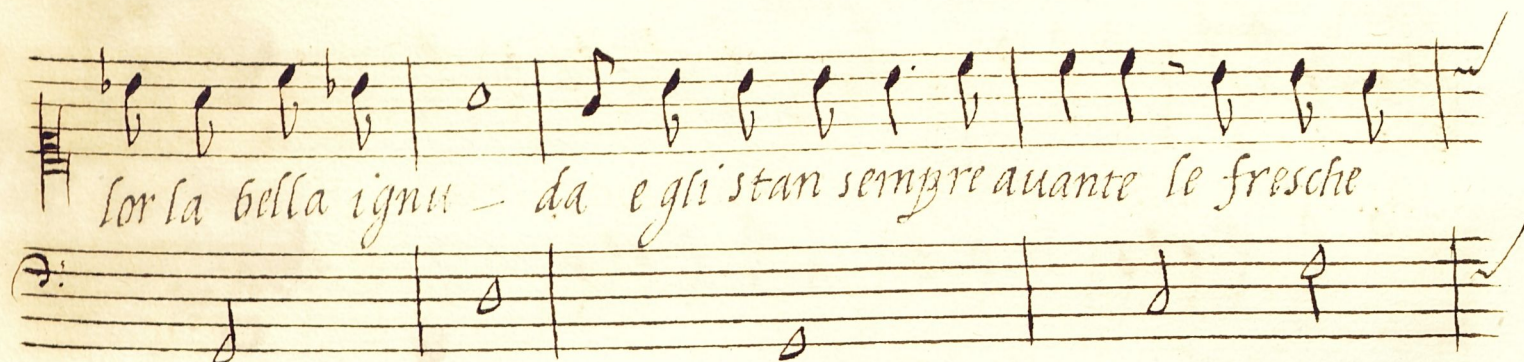 lor la bella ignu – da e gli stan sempre auante le fresche